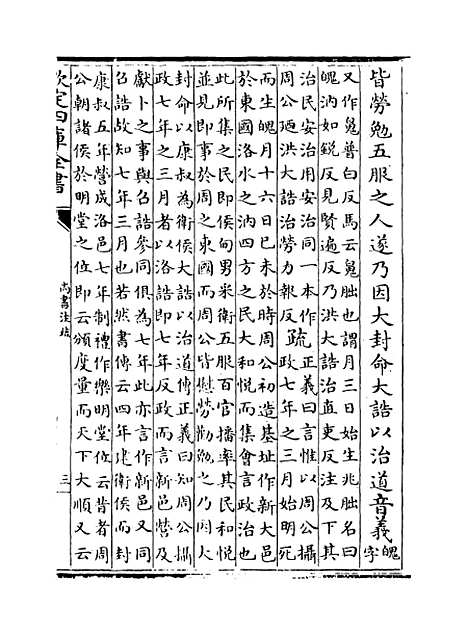 皆勞勉五服之人遂乃因大封命大誥以治道音義魄字
又作㲋普白反馬云㲋朏也謂月三日始生兆朏名曰
魄汭如鋭反見賢遍反乃洪大誥治直吏反注及下其
治民安治用安治同一本作
周公迺洪大誥治勞力報反疏正義曰言惟以周公攝
政七年之三月始明死
而生魄月十六日己未於時周公初造基址作新大邑
於東國洛水之汭四方之民大和悦而集會言政治也
此所集之民即侯甸男采衛五服百官播率其民和悦
並見即事於周之東國而周公皆慰勞勸勉之乃因大
封命以康叔為衛侯大誥以治道傳正義曰知周公攝
政七年之三月者以洛誥即七年反政而言新邑營及
獻卜之事與召誥參同俱為七年此亦言作新邑又同
召誥故知七年三月也若然書傳云四年建衛侯而封
康叔五年營成洛邑七年制禮作樂明堂位云昔者周
公朝諸侯於明堂之位即云頒度量而天下大順又云
欽定四庫全書
尚書注疏
三